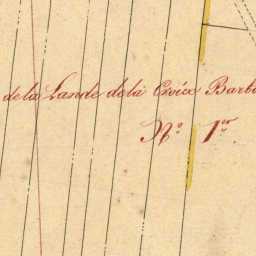 de la Lande de la Croix Barb
N.º 1.er